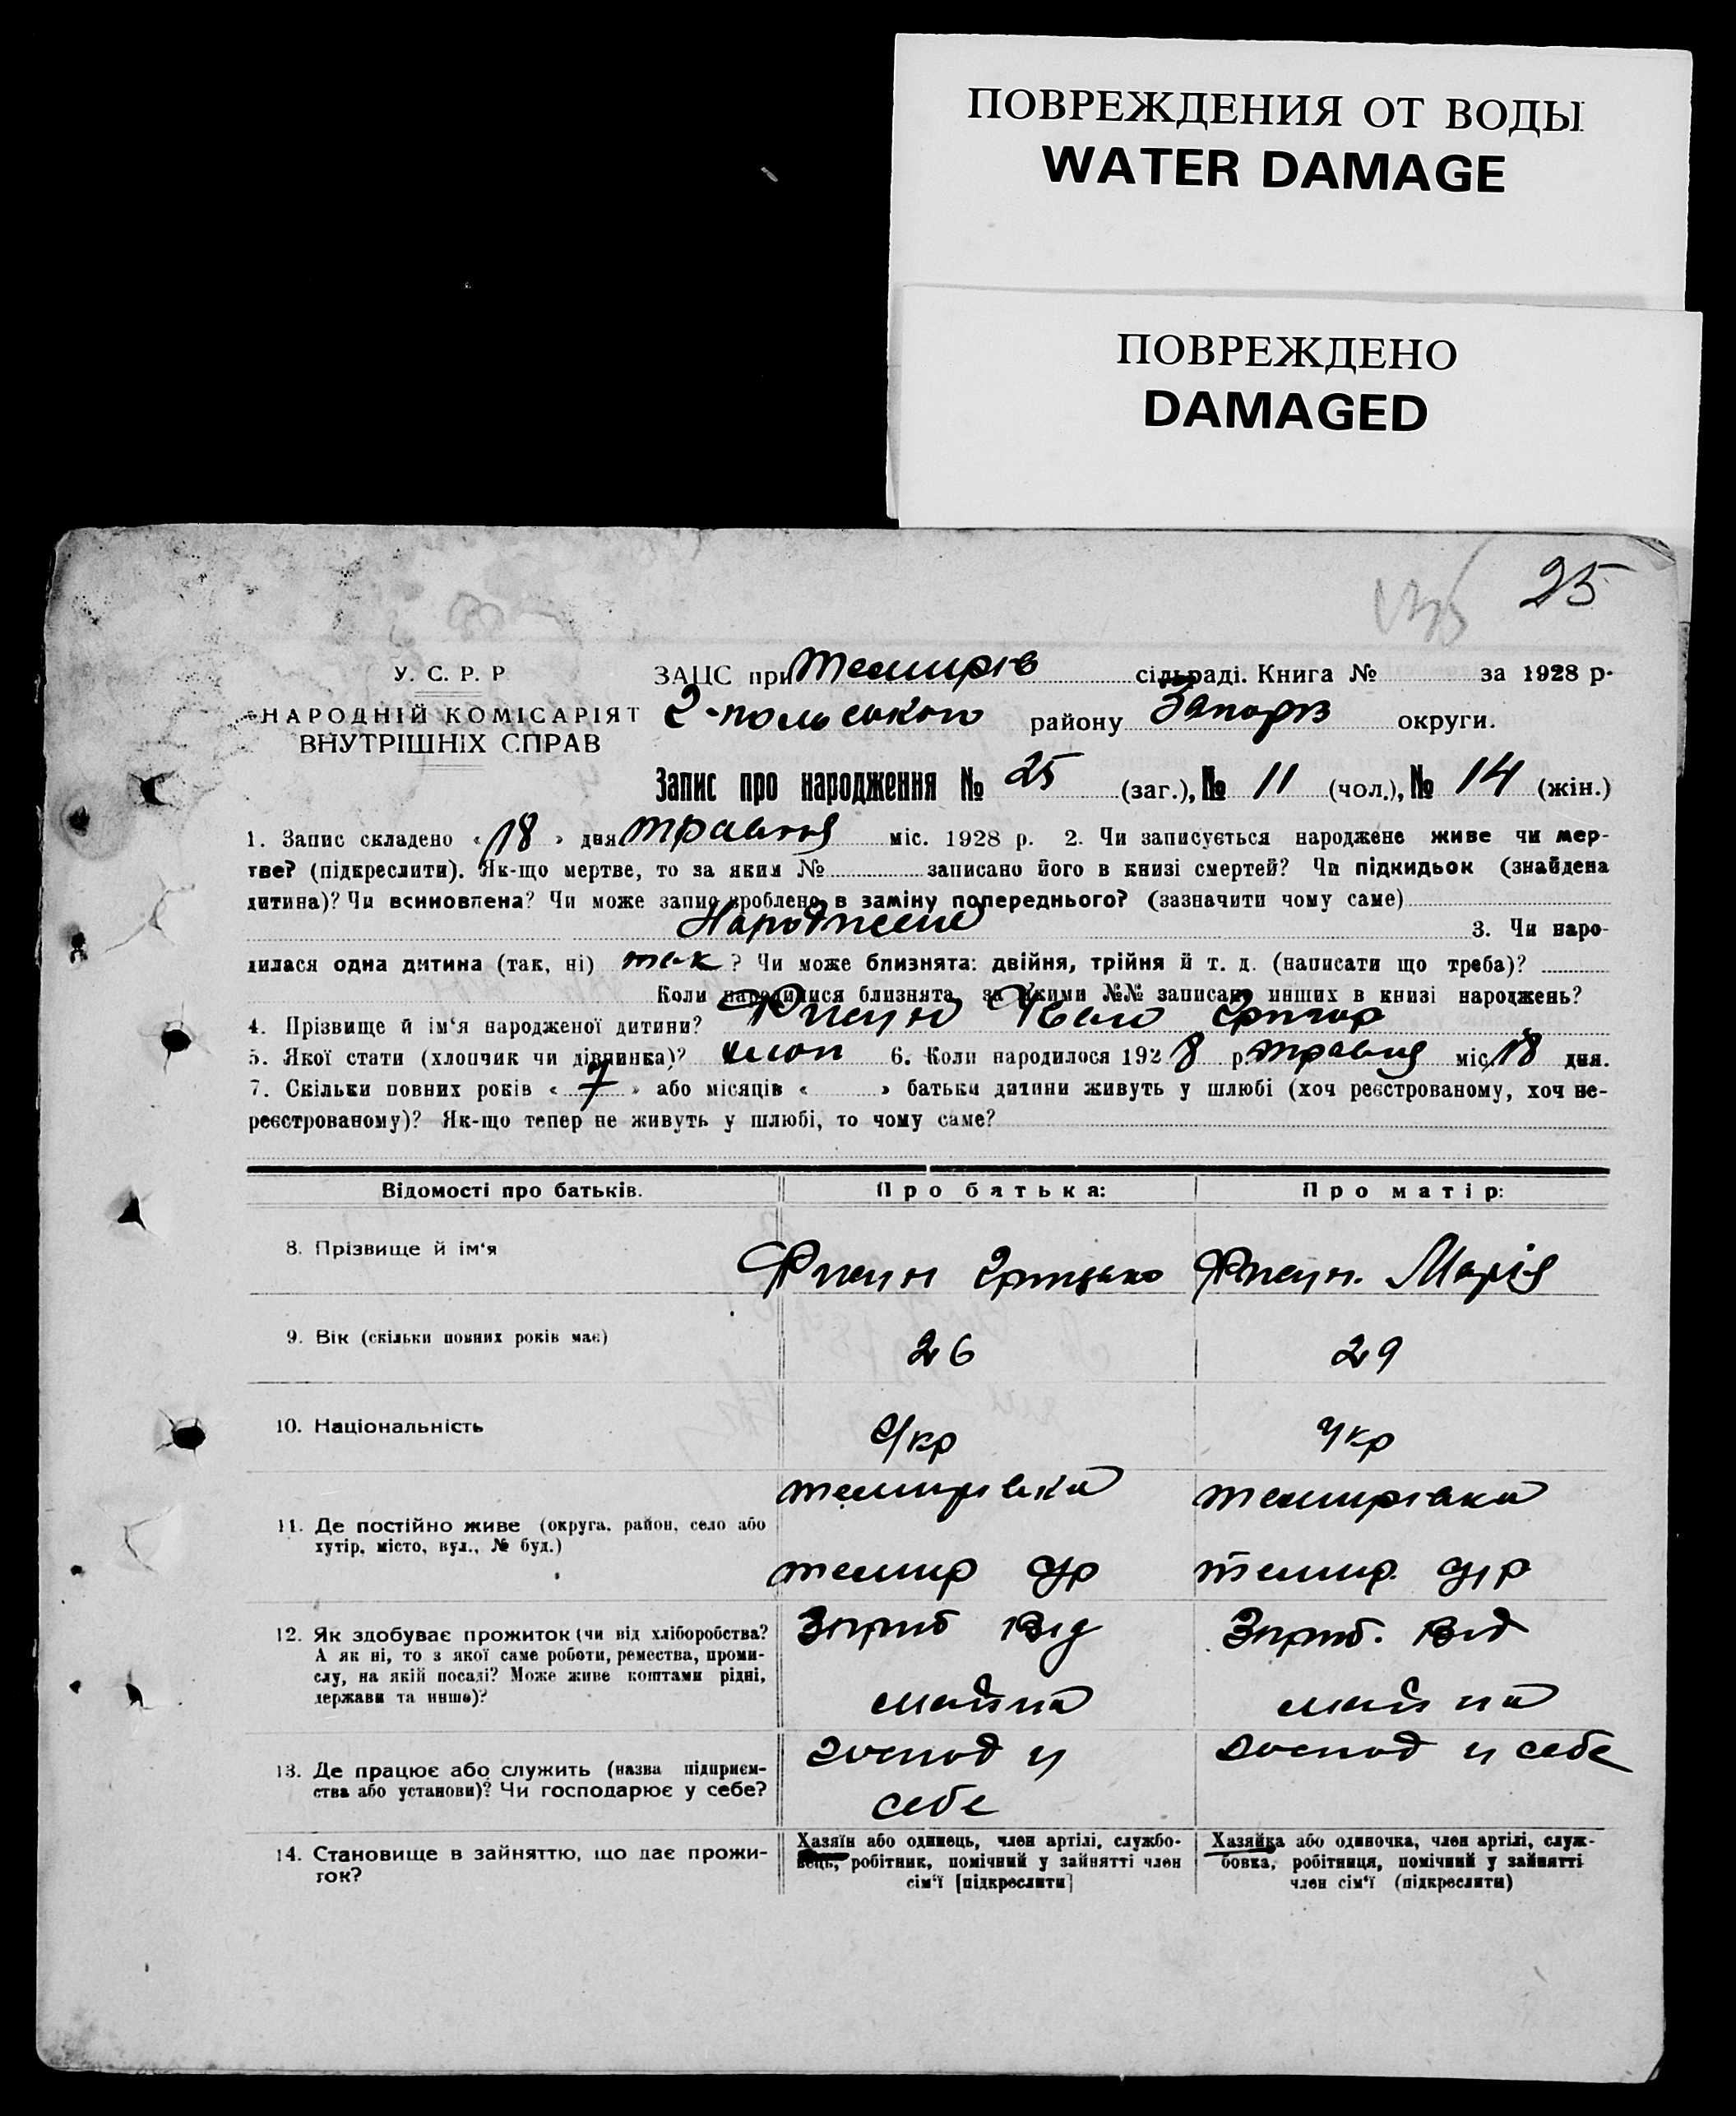 ПОВРЕЖДЕНИЯ ОТ ВОДЫ
WATER DAMAGE
ПОВРЕЖДЕНО
DAMAGED
25
У. С. Р. Р
НАРОДНІЙ КОМІСАРІЯТ
ВНУТРІШНІХ СПРАВ
ЗАЦС при Темирів сільраді. Книга № за 1928 р.
2-польського району Запоріз округи.
Запис про народження № 25 (заг.), № 11 (чол.), № 14 (жін.)
1. Запис складено « 18 » дня травня міс. 1928 р. 2. Чи записується народжене живе чи мер-
тве? (підкреслити). Як-що мертве, то за яким № записано його в книзі смертей? Чи підкидьок (знайдена
дитина)? Чи всиновлена? Чи може запис зроблено в заміну попереднього? (зазначити чому саме)
Народжене 3. Чи наро-
дилася одна дитина (так, ні) так ? Чи може близнята: двійня, трійня й т. д. (написати що треба)?
Коли народилися близнята, за якими №№ записано инших в книзі народжень?
4. Прізвище й ім'я народженої дитини? Фисун Іван Григор
5. Якої статі (хлопчик чи дівчинка)? хлоп 6. Коли народилося 1928 р. травня міс. 18 дня.
7. Скільки повних років « 7 » або місяців « » батьки дитини живуть у шлюбі (хоч реєстрованому, хоч не-
реєстрованому)? Як-що тепер не живуть у шлюбі, то чому саме?
Відомості про батьків. Про батька: Про матір:
8. Прізвище й ім'я Фисун Грицько Фисун. Марія
9. Вік (скільки повних років має) 26 29
10. Національність Укр Укр
11. Де постійно живе (округа, район, село або
хутір, місто, вул., № буд.)
темирівка темирівка
темир с/р темир. с/р
12. Як здобуває прожиток (чи від хліборобства?
А як ні, то з якої саме роботи, ремества, проми-
слу, на якій посаді? Може живе коштами рідні,
держави та инше)?
Зприб від Зприб. від
майна майна
13. Де працює або служить (назва підприєм-
ства або установи)? Чи господарює у себе?
господ у господ у себе
себе
14. Становище в зайняттю, що дає прожи-
ток?
Хазяїн або одинець, член артілі, службо-
вець, робітник, помічний у зайнятті член
сім'ї [підкреслити]
Хазяйка або одиночка, член артілі, служ-
бовка, робітниця, помічний у зайнятті
член сім'ї (підкреслити)